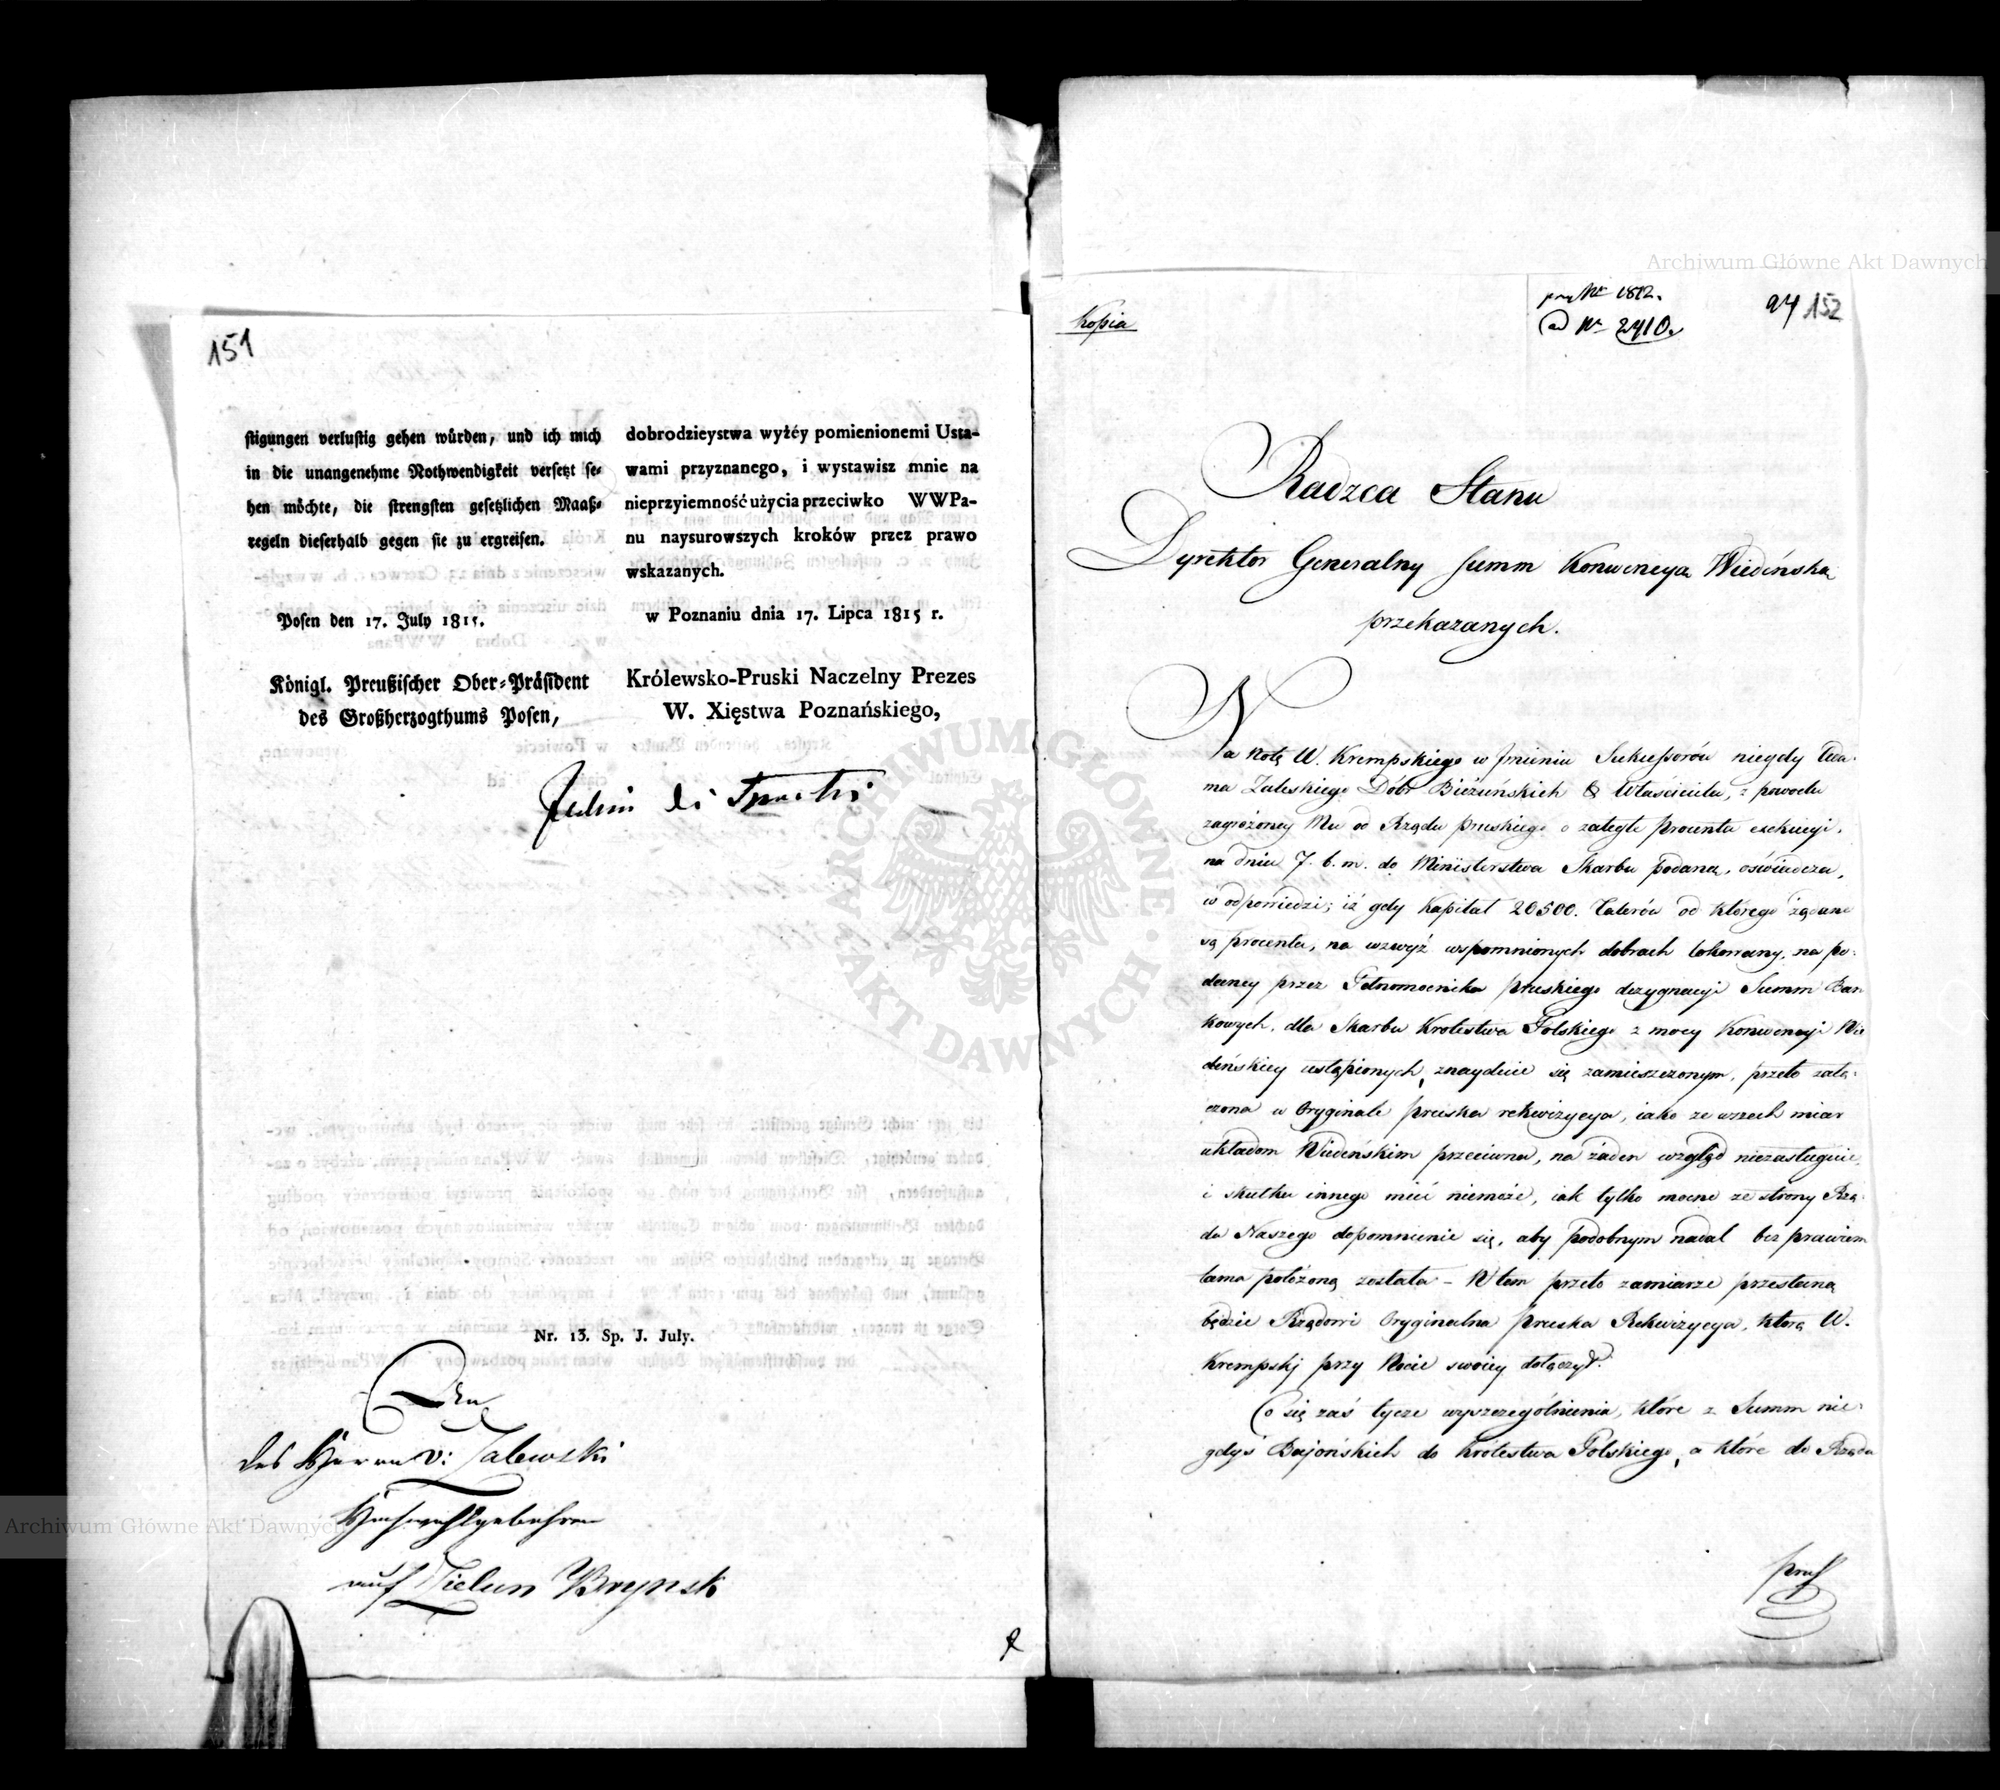 151
stigungen verlustig gehen würden, und ich mich
in die unangenehme Nothwendigkeit versetzt se-
hen möchte, die strengsten gesetzlichen Maaß-
regeln dieserhalb gegen sie zu ergreifen.
Posen den 17. July 1815.
Königl. Preußischer Ober-Präsident
des Großherzogthums Posen,
dobrodzieystwa wyżéy pomienionemi Usta-
wami przyznanego, i wystawisz mnie na
nieprzyiemność użycia przeciwko WWPa-
nu naysurowszych kroków przez prawo
wskazanych.
w Poznaniu dnia 17. Lipca 1815 r.
Królewsko-Pruski Naczelny Prezes
W. Xięstwa Poznańskiego,
Nr. 13. Sp. J. July.
Den
des Herrn v: Zalewski
Hochwohlgebohren
auf Bieżun
Kopia
Nr 1812.
ad Nr 2410.
94 152
Radzca Stanu
Dyrektor Generalny Summ Konwencyą Wiedeńską
przekazanych.
Na Notę W. Krempskiego w Jmieniu Sukcessorów niegdy Ada-
ma Zaleskiego Dóbr Bieżuńskich Właściciela, z powodu
zagrożoney Mu od Rządu pruskiego o zaległe procenta exekucyi,
na dniu 7. b. m. do Ministerstwa Skarbu podaną, oświadcza,
w odpowiedzi; iż gdy Kapitał 20500. Talerów od którego żądane
są procenta, na wzwyż wspomnionych dobrach lokowany, na po-
daney przez Pełnomocnika pruskiego dezygnacyi Summ Ban
kowych, dla Skarbu Krolestwa Polskiego z mocy Konwencyi Wie
deńskiey ustąpionych, znayduie się zamieszczonym, przeto załą-
czona w Oryginale pruska rekwizycya, iako ze wszech miar
układom Wiedeńskim przeciwna, na żaden wzgląd niezasługuie,
i skutku innego mieć niemoże, iak tylko mocne ze strony Rzą-
du Naszego dopomnienie się, aby podobnym nadal bezprawiom
tama położoną została – W tem przeto zamiarze przesłaną
będzie Rządowi Oryginalna pruska Rekwizycya, którą W.
Krempskj przy Nocie swoiey dołączył.
Co się zaś tycze wyszczególnienia, które z Summ nie-
gdyś Bajońskich do Krolestwa Polskiego, a które do Rządu
prus
Archiwum Główne Akt Dawnych
Archiwum Główne Akt Dawnych
ARCHIWUM GŁÓWNE AKT DAWNYCH